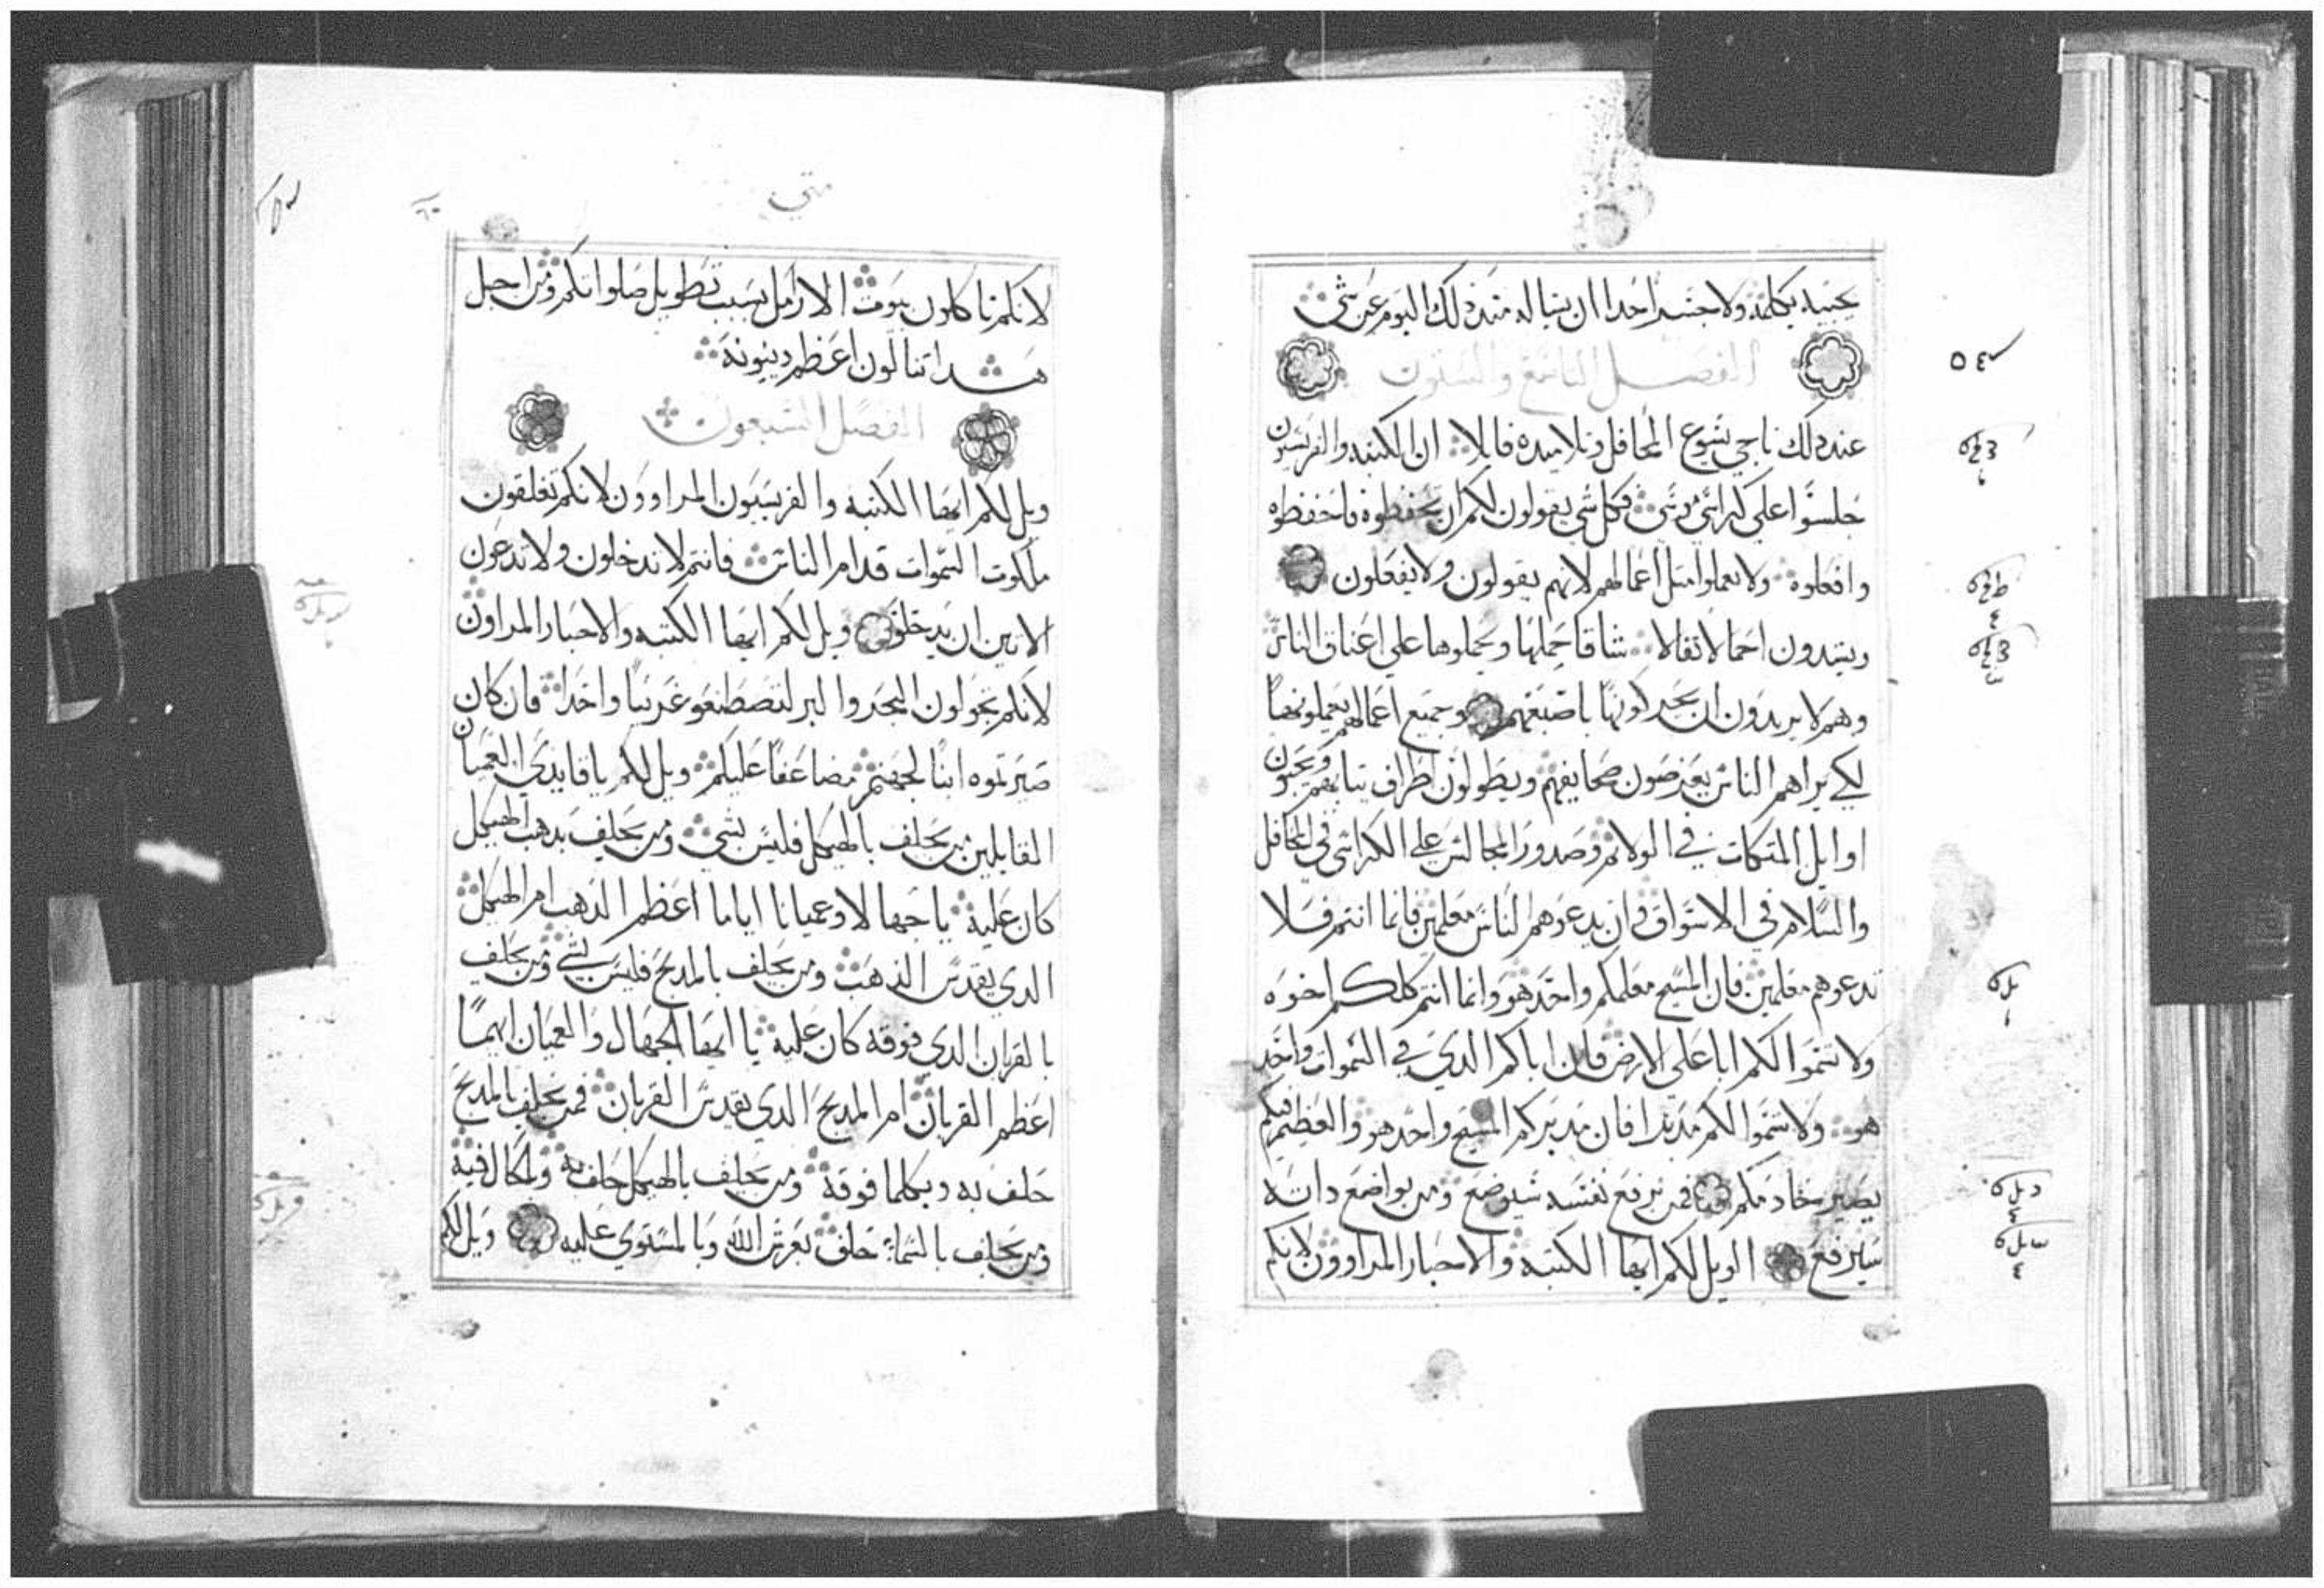 يجيبه بكلمة ولا جسر احدا ان يساله منذ ذلك اليوم عن شي
الفصل التاسع والستون
عند ذلك ناجي يشوع المحافل وتلاميده قايلا ان الكتبه والفريسيون
جلسوا على كراسي موسى فكل شي يقولون لكم ان تحفظوه فاحفظوه
وافعلوه ولا تعملوا مثل اعمالهم لانهم يقولون ولا يفعلون
ويشدون احمالا ثقالا شاقا حملها ويحملوها علي اعناق الناس
وهم لا يريدون ان يحركونها باصبعهم وجميع اعمالهم يعملونها
لكي يراهم الناس يعرضون صحايفهم ويطولون اطراف تيابهم ويحبون
اوايل المتكات في الولائم وصدور المجالس علي الكراسي في المحافل
والسلام في الاسواق وان يدعوهم الناس معلمين فاما انتم فلا
تدعوهم معلمين فان المسيح معلمكم واحد هو وانما انتم كلكم اخوه
ولا تسموا لكم ابا على الارض فان اباكم الدي في السموات واحد
هو ولا تسموا لكم مدبرا فان مدبركم المسيح واحد هو والعظيم فيكم
يصير خادمكم فمن يرفع نفسه سيوضع ومن يواضع داته
سيرفع الويل لكم ايها الكتبه والاحبار المراوون لانكم
متي
٦٠
لانكم تاكلون بيوت الارامل بسبب تطويل صلواتكم ومن اجل
هدا تنالون اعظم دينونة
الفصل السبعون
ويل لكم ايها الكتبه والفريسيون المراوون لانكم تغلقون
ملكوت السموات قدام الناس فانتم لا تدخلون ولا تدعون
الاتين ان يدخلو ويل لكم ايها الكتبه والاحبار المراون
لانكم تجولون البحر والبر لتصطنعو غريبا واحدا فان كان
صيرتموه ابنا لجهنم مضاعفا عليكم ويل لكم يا قايدي العميان
القايلين من يحلف بالهيكل فليس بشي ومن يحلف بدهب الهيكل
كان عليه يا جهالا وعميانا ايما اعظم الدهب ام الهيكل
الدي يقدس الذهب ومن يحلف بالمدبح فليس بشي ومن يحلف
بالقربان الدي فوقه كان عليه يا ايها الجهال والعميان ايهما
اعظم القربان ام المدبح الدي يقدس القربان فمن يحلف بالمدبح
حلف به وبكلما فوقه ومن يحلف بالهيكل حلف به وبالحال فيه
ومن يحلف بالسماء حلف بعرش الله وبالمستوي عليه ويل لكم